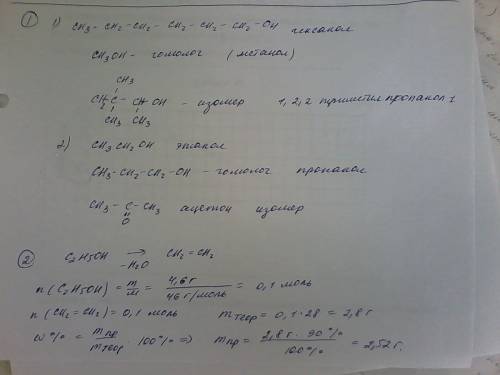 ① 1) CH3-CH2-CH2-CH2-CH2-CH2-OH гексанол
CH3OH - гомолог (метанол)
CH3
CH3-C-CH-OH - изомер 1,2,2 триметилпропанол 1
CH3 CH3
2) CH3CH2OH этанол
CH3-CH2-CH2-OH - гомолог пропанол
CH3-C-CH3 ацетон изомер
O
② C2H5OH → CH2=CH2
-H2O
n(C2H5OH) = m/M = 4,6 г / 46 г/моль = 0,1 моль
n(CH2=CH2) = 0,1 моль mтеор = 0,1·28 = 2,8 г
ω% = mпр/mтеор · 100% => mпр = 2,8 г · 90% / 100% = 2,52 г.